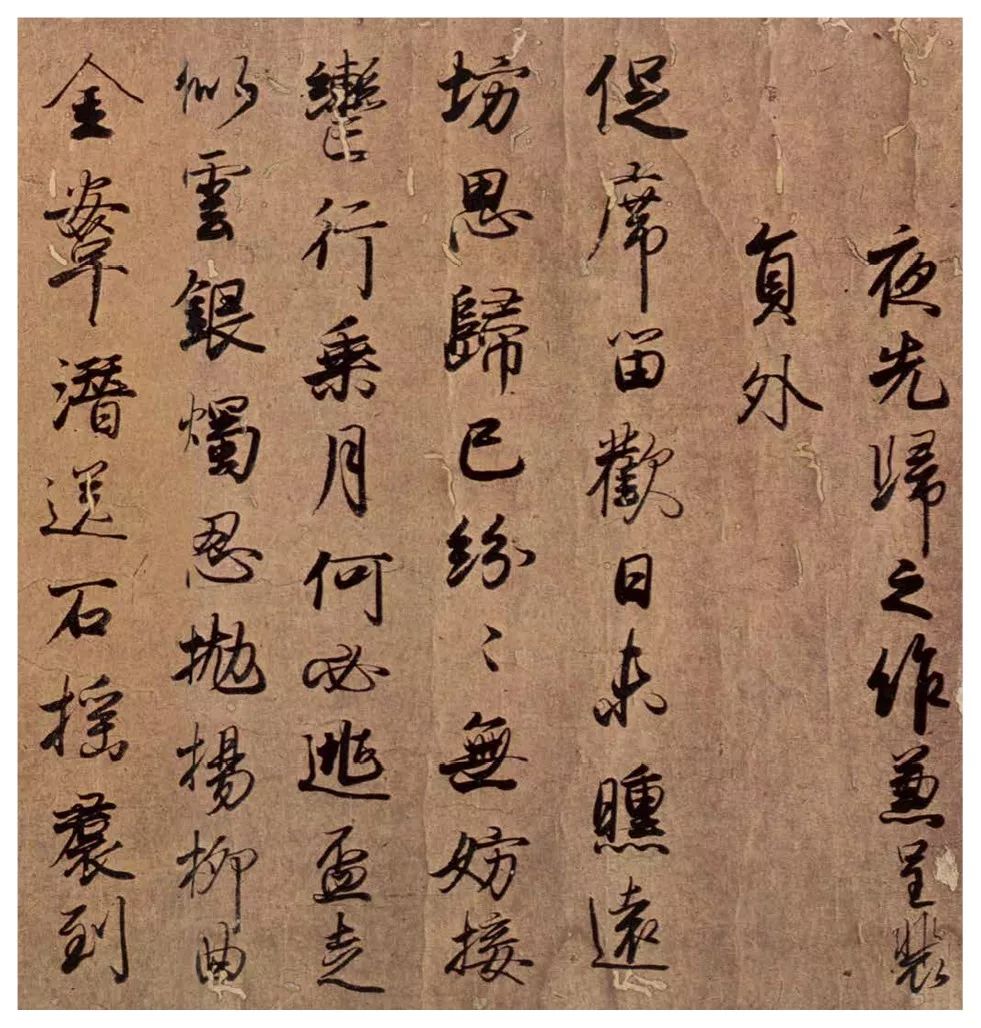 夜先歸之作兼呈裴
員外
促席留歡日未曛遠
坊思歸已紛〻無妨按
轡行乘月何必逃盃走
似雲銀燭忍拋楊柳曲
金鞌潛送石榴裠到